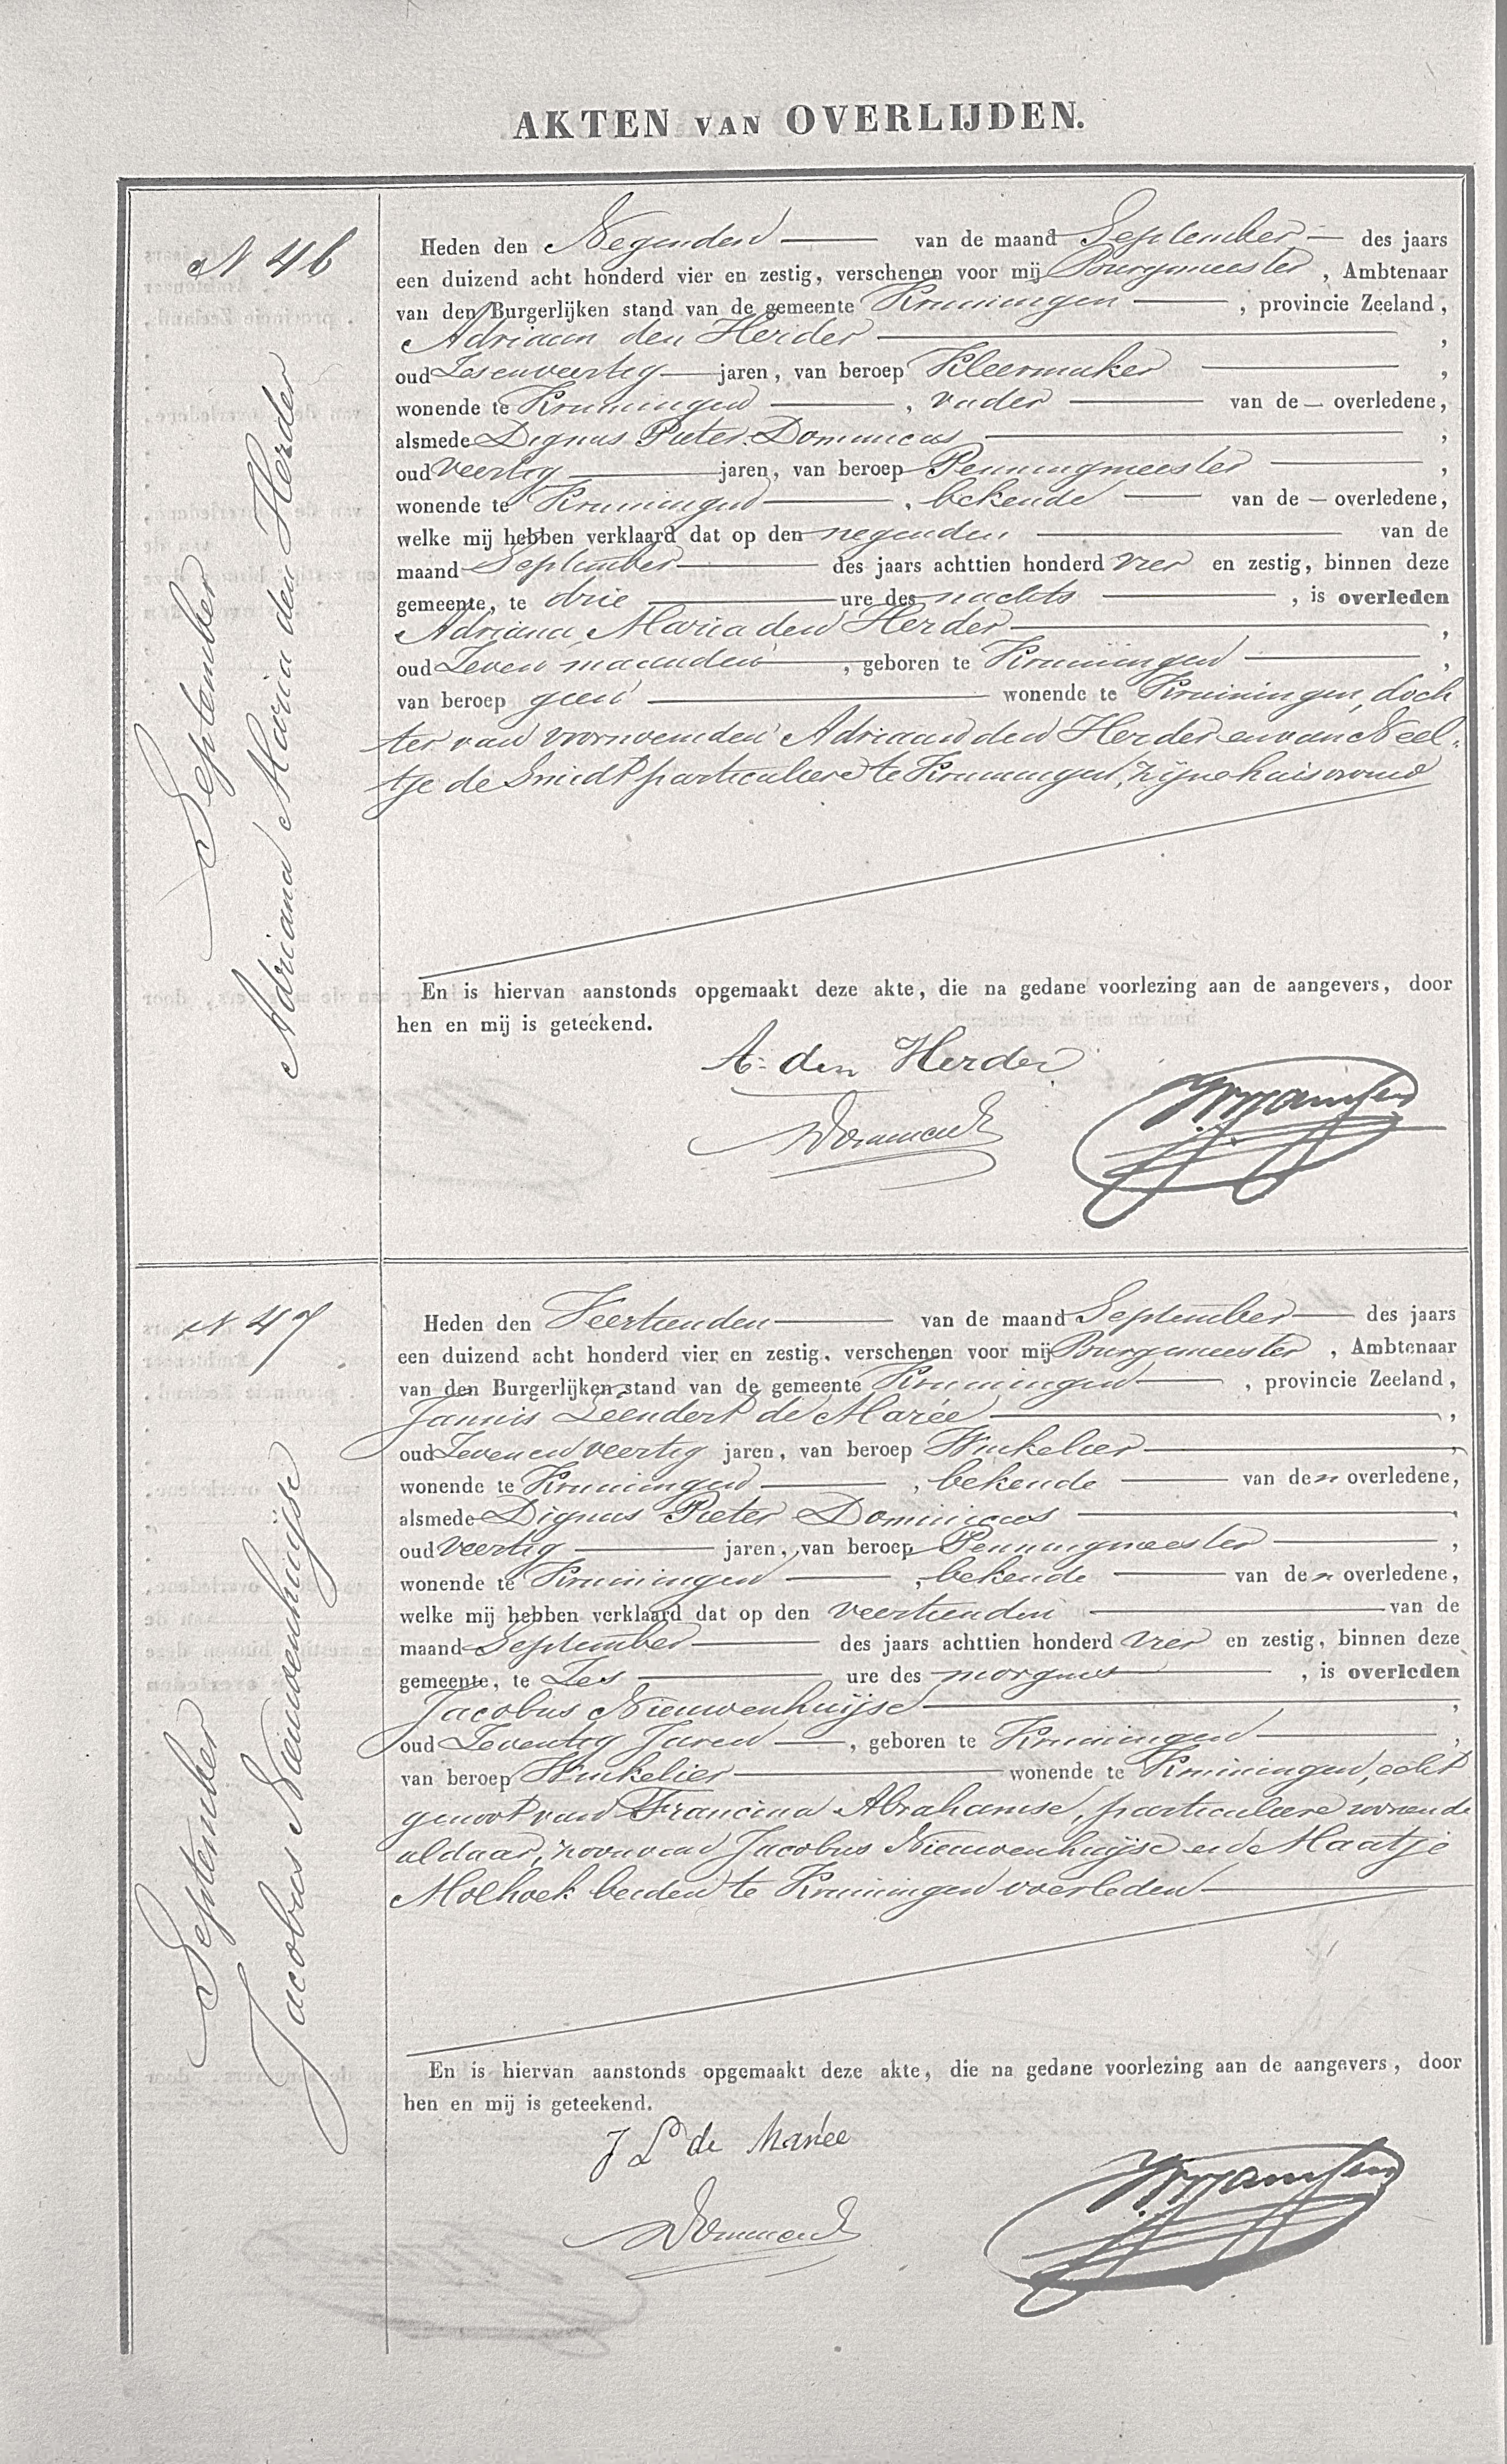 AKTEN VAN OVERLIJDEN.
N 46
September
Adriana Maria den Herder
Heden den Negenden van de maand September des jaars
een duizend acht honderd vier en zestig, verschenen voor mij Bourgmeester, Ambtenaar
van den Burgerlijken stand van de gemeente Kruiningen, provincie Zeeland,
Adriaan den Herder,
oud Zesenveertig jaren, van beroep Kleermaker,
wonende te Kruiningen, vader van de overledene,
alsmede Dignus Pieter Dominicus,
oud veertig jaren, van beroep Penningmeester,
wonende te Kruiningen, bekende van de overledene,
welke mij hebben verklaard dat op den negenden van de
maand September des jaars achttien honderd vier en zestig, binnen deze
gemeente, te drie ure des nachts, is overleden
Adriana Maria den Herder,
oud Zeven maanden, geboren te Kruiningen,
van beroep geen wonende te Kruiningen, doch
ter van voornoemden Adriaan den Herder en van Neel-
tje de Smidt particuliere te Kruiningen, zijne huisvrouw
En is hiervan aanstonds opgemaakt deze akte, die na gedane voorlezing aan de aangevers, door
hen en mij is geteekend.
A. den Herder
N 47
September
Jacobus Nieuwenhuijse
Heden den Veertienden van de maand September des jaars
een duizend acht honderd vier en zestig, verschenen voor mij Bourgmeester, Ambtenaar
van den Burgerlijken stand van de gemeente Kruiningen, provincie Zeeland,
Jannis Leendert de Marée,
oud Zevenenveertig jaren, van beroep Winkelier,
wonende te Kruiningen, bekende van den overledene,
alsmede Dignus Pieter Dominicus,
oud veertig jaren, van beroep Penningmeester,
wonende te Kruiningen, bekende van den overledene,
welke mij hebben verklaard dat op den veertienden van de
maand September des jaars achttien honderd vier en zestig, binnen deze
gemeente, te Zes ure des morgens, is overleden
Jacobus Nieuwenhuijse,
oud Zeventig Jaren, geboren te Kruiningen,
van beroep Winkelier wonende te Kruiningen, echt
genoot van Francina Abrahamse, particuliere wonende
aldaar, zoon van Jacobus Nieuwenhuijse en Maatje
Molhoek beiden te Kruiningen overleden
En is hiervan aanstonds opgemaakt deze akte, die na gedane voorlezing aan de aangevers, door
hen en mij is geteekend.
J L de Marée